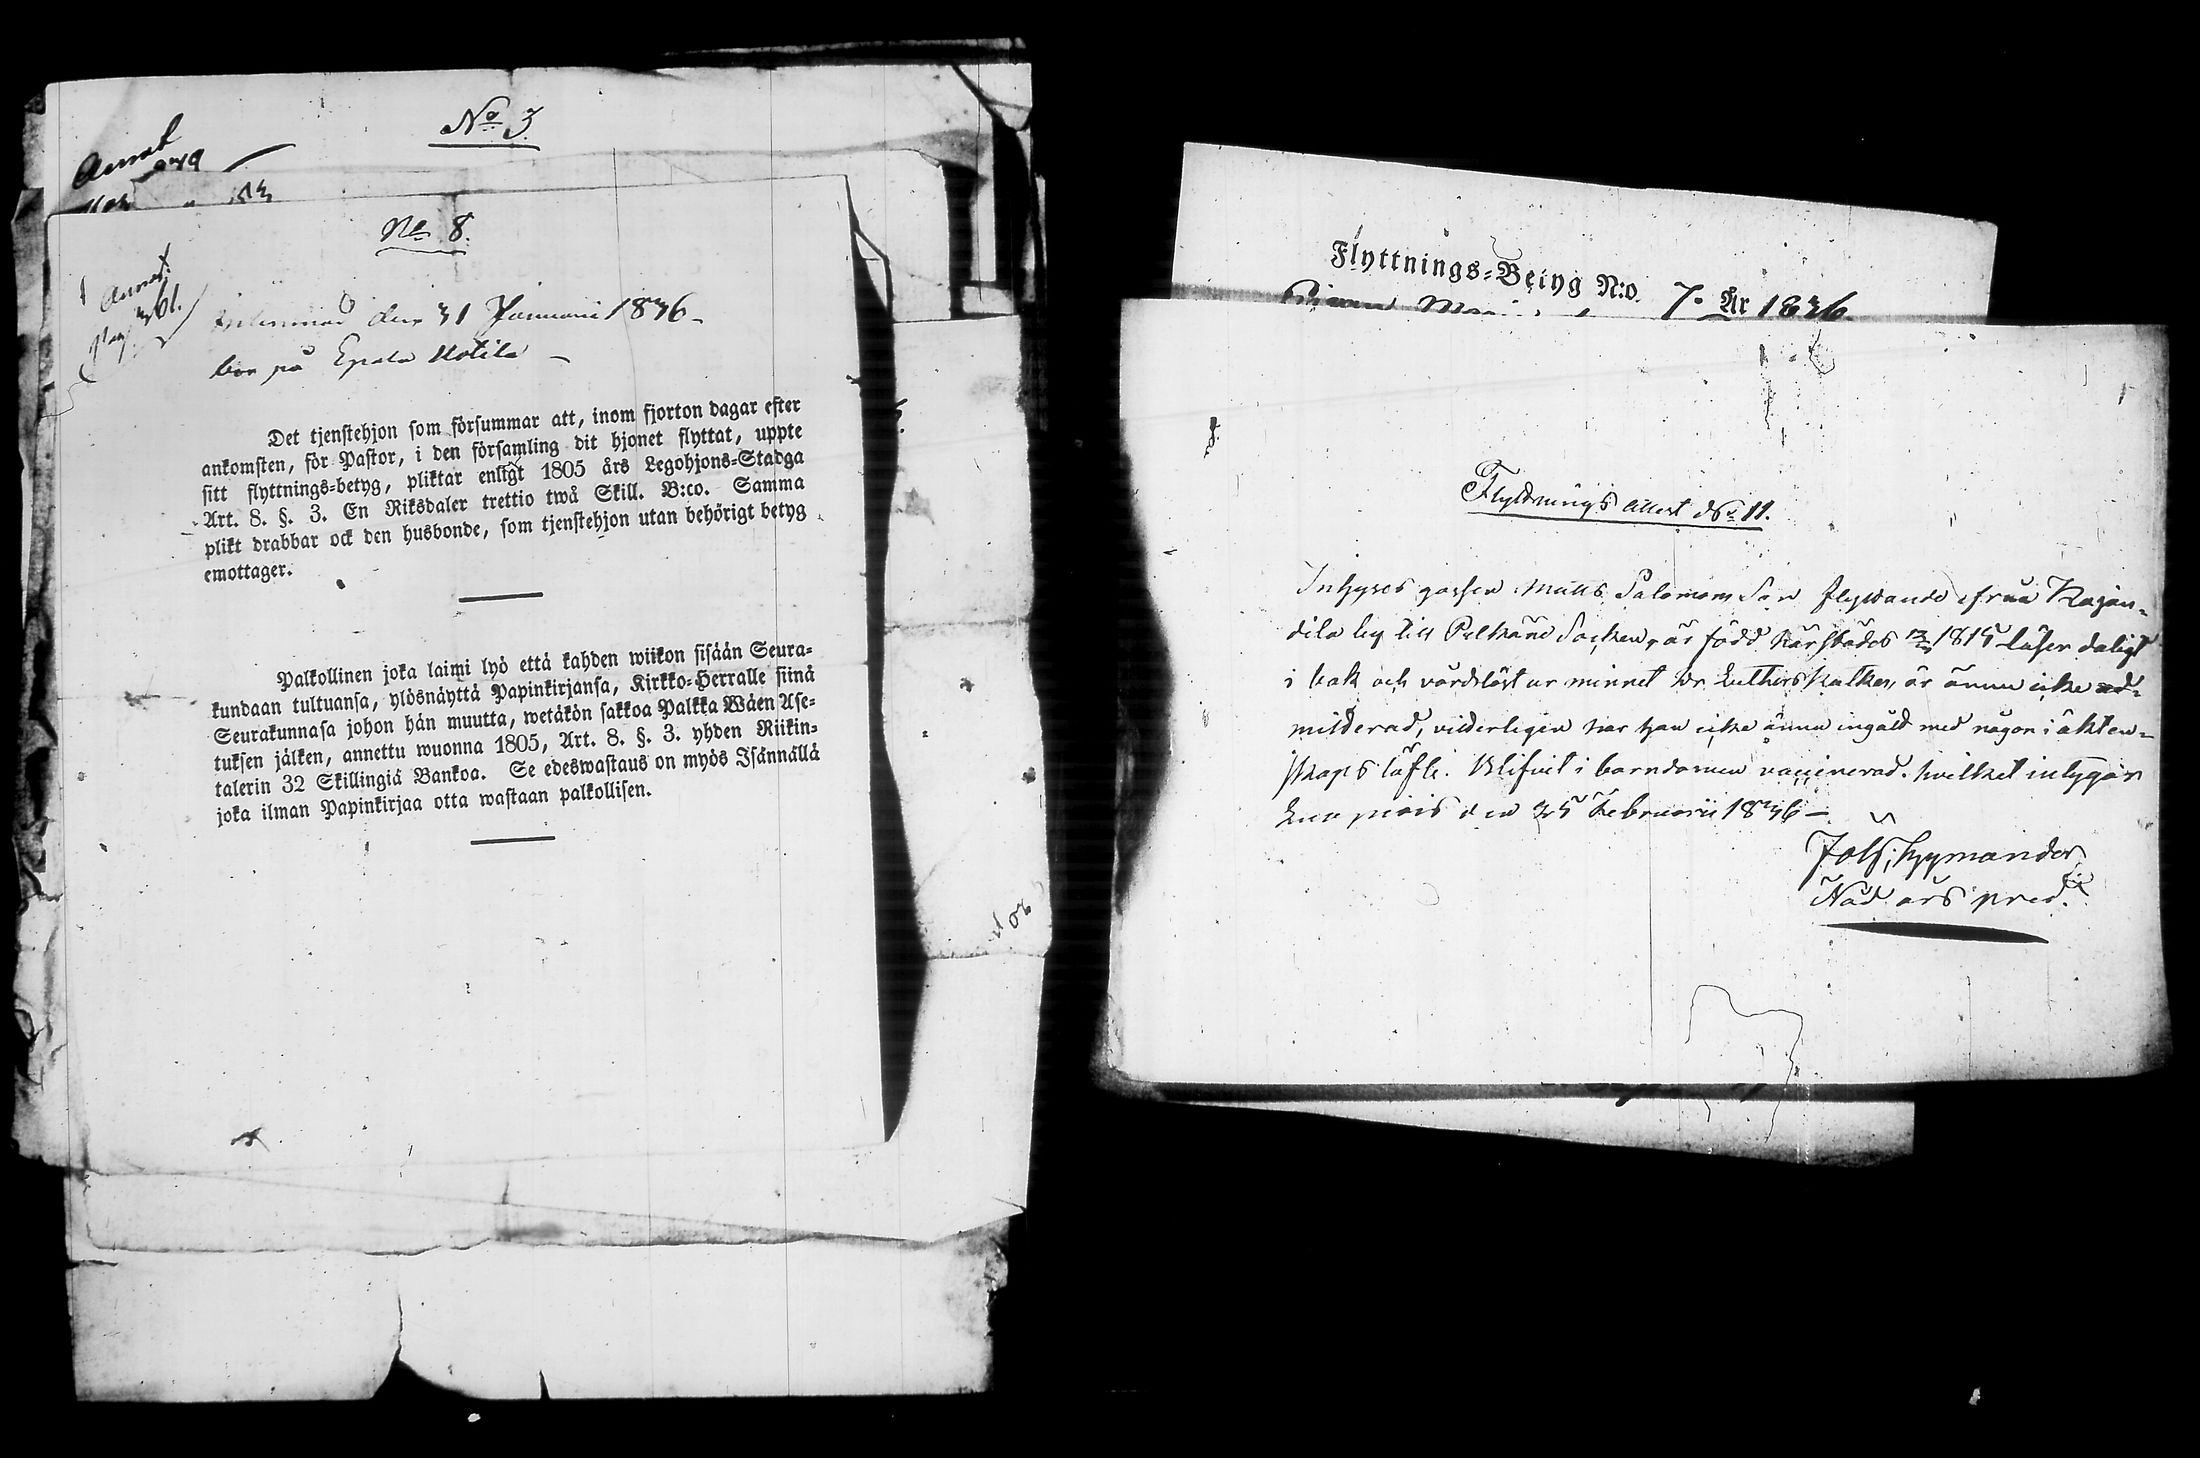 No 3
Annot
No 8.
Annot.
pag 361.
Inlemnad den 31 Januarii 1836 –
bor på Epala Uotila –
Det tjenstehjon som försummar att, inom fjorton dagar efter
ankomsten, för Pastor, i den församling dit hjonet flyttat, uppte
sitt flyttnings-betyg, pliktar enligt 1805 års Legohjons-Stadga
Art. 8. §. 3. En Riksdaler trettio twå Skill. B:co. Samma
plikt drabbar ock den husbonde, som tjenstehjon utan behörigt betyg
emottager.
Palkollinen joka laimi lyö että kahden wiikon sisään Seura-
kundaan tultuansa, ylösnäyttä Papinkirjansa, Kirkko-Herralle siinä
Seurakunnasa johon hän muutta, wetäkön sakkoa Palkka Wäen Ase-
tuksen jälken, annettu wuonna 1805, Art. 8. §. 3. yhden Riikin-
talerin 32 Skillingiä Bankoa. Se edeswastaus on myös Isännällä
joka ilman Papinkirjaa otta wastaan palkollisen.
Flyttnings-Betyg N:o. 7. År 1836
Flyttnings Attest No 11.
Inhyses gossen Matts Salomons Son flyttande ifrån Kagan-
dila by till Pelkäne Socken, är född härstädes 1815 läser daligt
i bok och vårdslöst ur minnet Dr Luthers Katkes, är ännu icke ad-
mitterad, vidderligen har han icke ännu ingått med någon i äkten-
skaps löfte. Blifvit i barndomen vaccinerad. hvilket intygar
Luopiois den 25 Februarii 1836 –
Joh: Hymander
Nåd års pred.